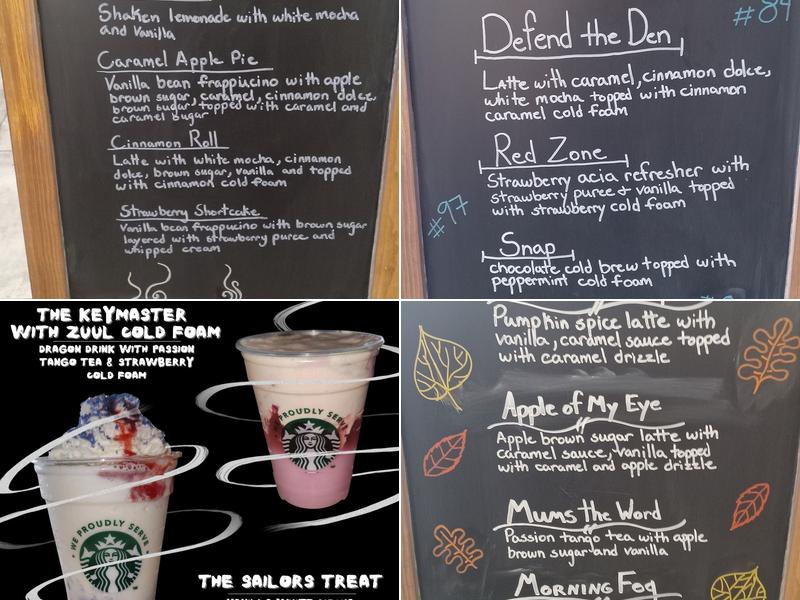 Shaken lemonade with white mocha
and vanilla
Caramel Apple Pie
Vanilla bean frappucino with apple
brown sugar, caramel, cinnamon dolce,
brown sugar, topped with caramel and
caramel sugar
Cinnamon Roll
Latte with white mocha, cinnamon
dolce, brown sugar, vanilla and topped
with cinnamon cold foam
Strawberry Shortcake
Vanilla bean frappucino with brown sugar
layered with strawberry puree and
whipped cream
#84
Defend the Den
Latte with caramel, cinnamon dolce,
white mocha topped with cinnamon
caramel cold foam
Red Zone
Strawberry acia refresher with
strawberry puree & vanilla topped
with strawberry cold foam
#97
Snap
chocolate cold brew topped with
peppermint cold foam
THE KEYMASTER
WITH ZUUL COLD FOAM
DRAGON DRINK WITH PASSION
TANGO TEA & STRAWBERRY
COLD FOAM
PROUDLY SERVE
WE PROUDLY SERVE
THE SAILORS TREAT
Pumpkin spice latte with
vanilla, caramel sauce topped
with caramel drizzle
Apple of My Eye
Apple brown sugar latte with
caramel sauce, vanilla topped
with caramel and apple drizzle
Mums the Word
Passion tango tea with apple
brown sugar and vanilla
Morning Fog